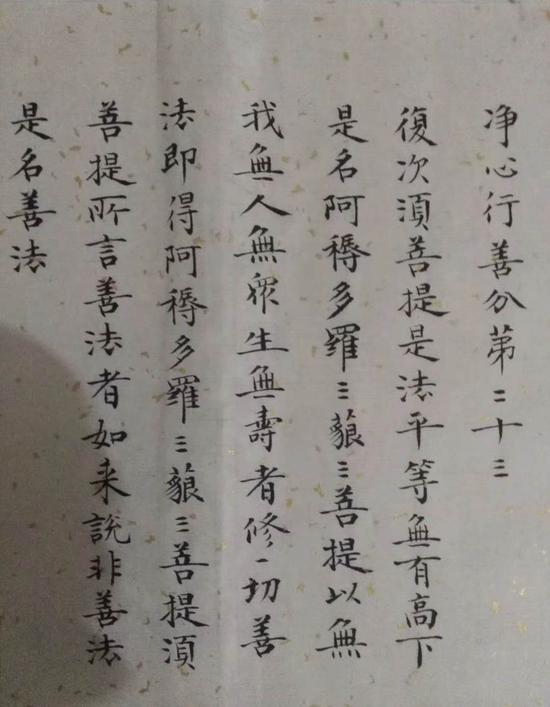 净心行善分第二十三
復次須菩提是法平等無有高下
是名阿耨多羅三藐三菩提以無
我無人無眾生無壽者修一切善
法即得阿耨多羅三藐三菩提須
菩提所言善法者如来說非善法
是名善法